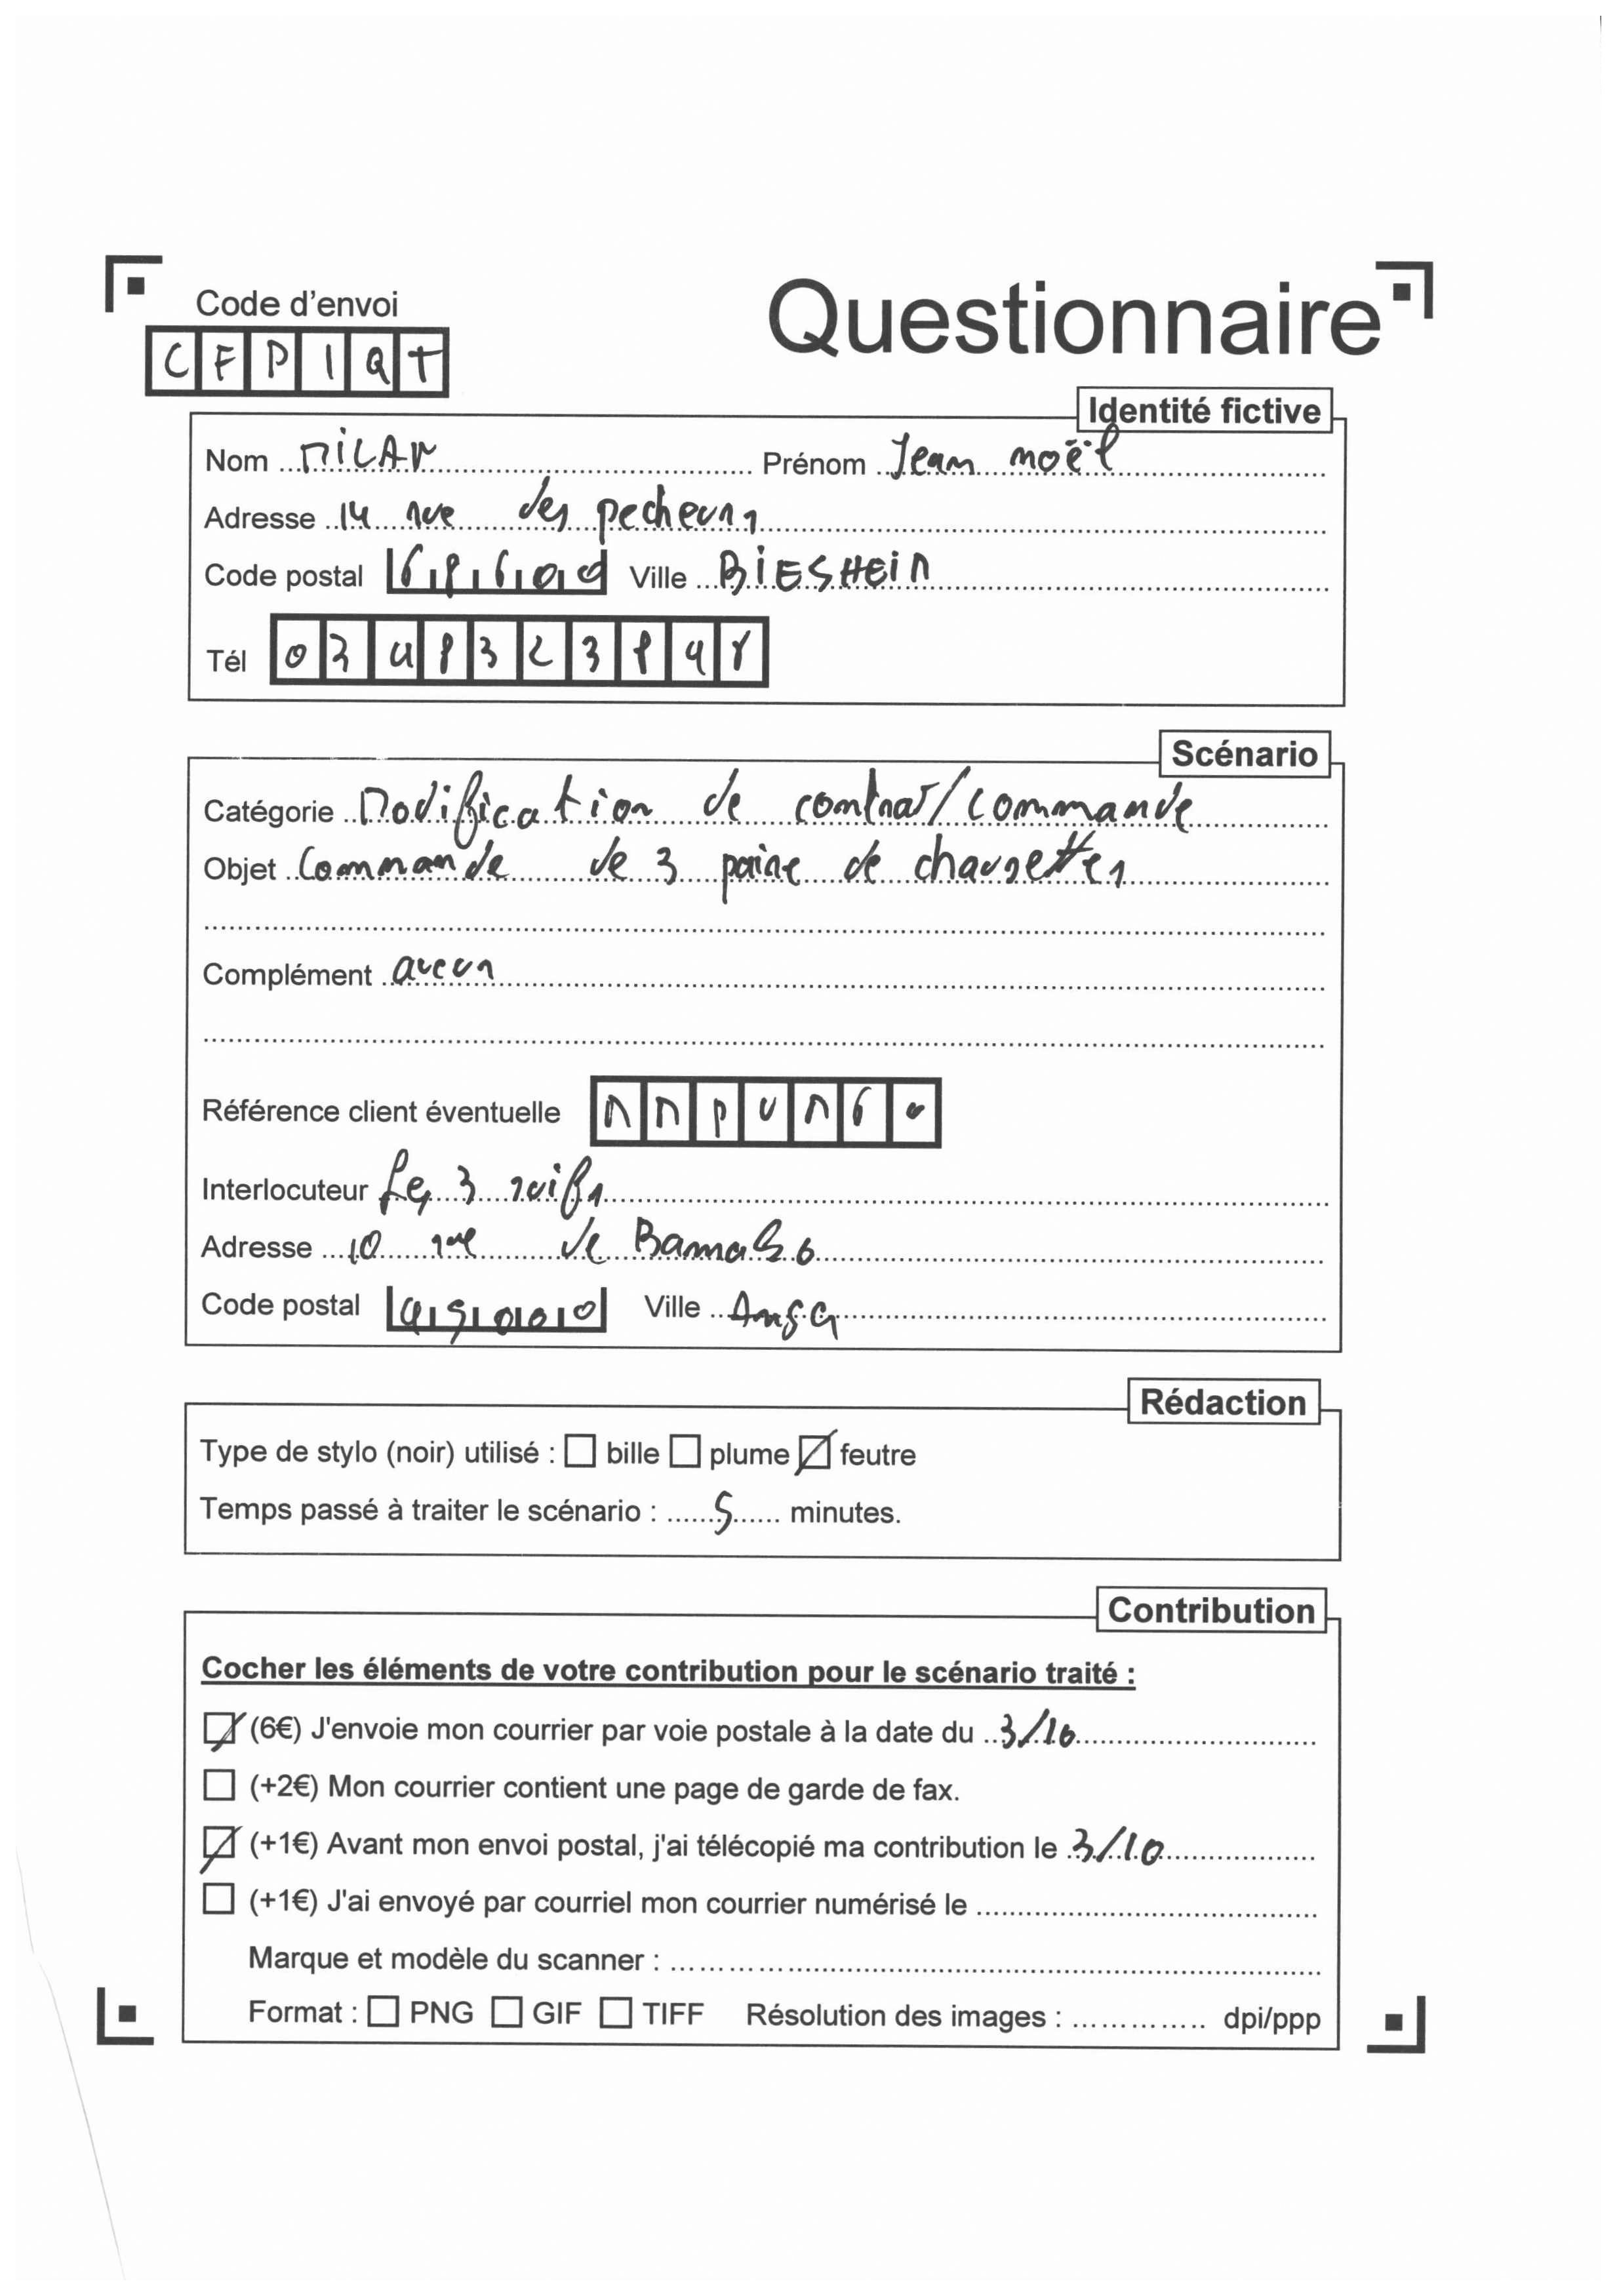 Code d'envoi
Questionnaire
C F P I Q T
Identité fictive
Nom MILAN Prénom Jean noël
Adresse 14 rue des pecheurs
Code postal 68600 Ville BIESHEIN
Tél 03 48 32 38 48
Scénario
Catégorie Modification de contrat/commande
Objet Commande de 3 paire de chaussettes
Complément aucun
Référence client éventuelle
Interlocuteur Les 3 suifs
Adresse 10 rue de
Code postal 49000 Ville
Rédaction
Type de stylo (noir) utilisé : ☐ bille ☐ plume ☑ feutre
Temps passé à traiter le scénario : 5 minutes.
Contribution
Cocher les éléments de votre contribution pour le scénario traité :
☑ (6€) J'envoie mon courrier par voie postale à la date du 3/10
☐ (+2€) Mon courrier contient une page de garde de fax.
☑ (+1€) Avant mon envoi postal, j'ai télécopié ma contribution le 3/10
☐ (+1€) J'ai envoyé par courriel mon courrier numérisé le
Marque et modèle du scanner :
Format : ☐ PNG ☐ GIF ☐ TIFF Résolution des images : dpi/ppp